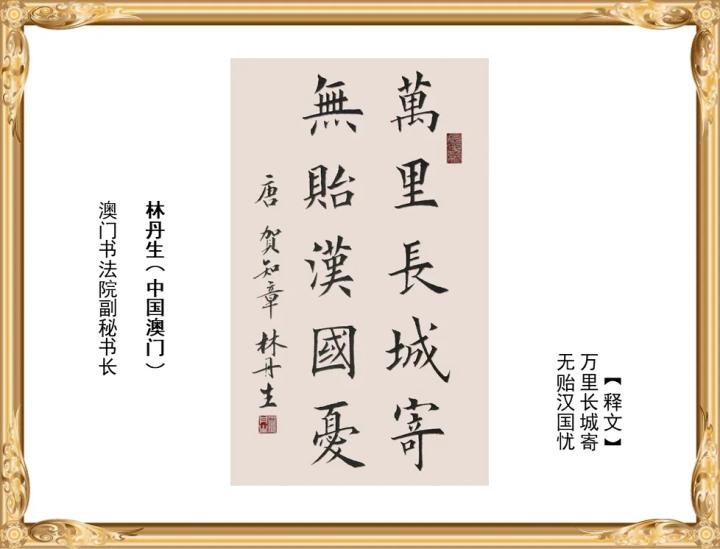 萬里長城寄
無貽漢國憂
唐 賀知章 林丹生
【释文】
万里长城寄
无贻汉国忧
林丹生（中国澳门）
澳门书法院副秘书长